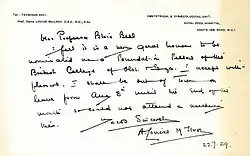 TEL: TERMINUS 4411.
Prof: Dame LOUISE McILROY, D.B.E., M.D., D.Sc.
OBSTETRICAL & GYNÆCOLOGICAL UNIT,
ROYAL FREE HOSPITAL,
GRAY'S INN ROAD, W.C.1.
Dear Professor Blair Bell
I feel it is a very great honour to be
nominated as a Foundation Fellow of the
British College of Obst. I accept with
pleasure. I shall be out of Town on
leave from Aug 2nd until the end of the
month so could not attend a meeting
then.
Yours Sincerely
A Louise McIlroy
22.7.29.